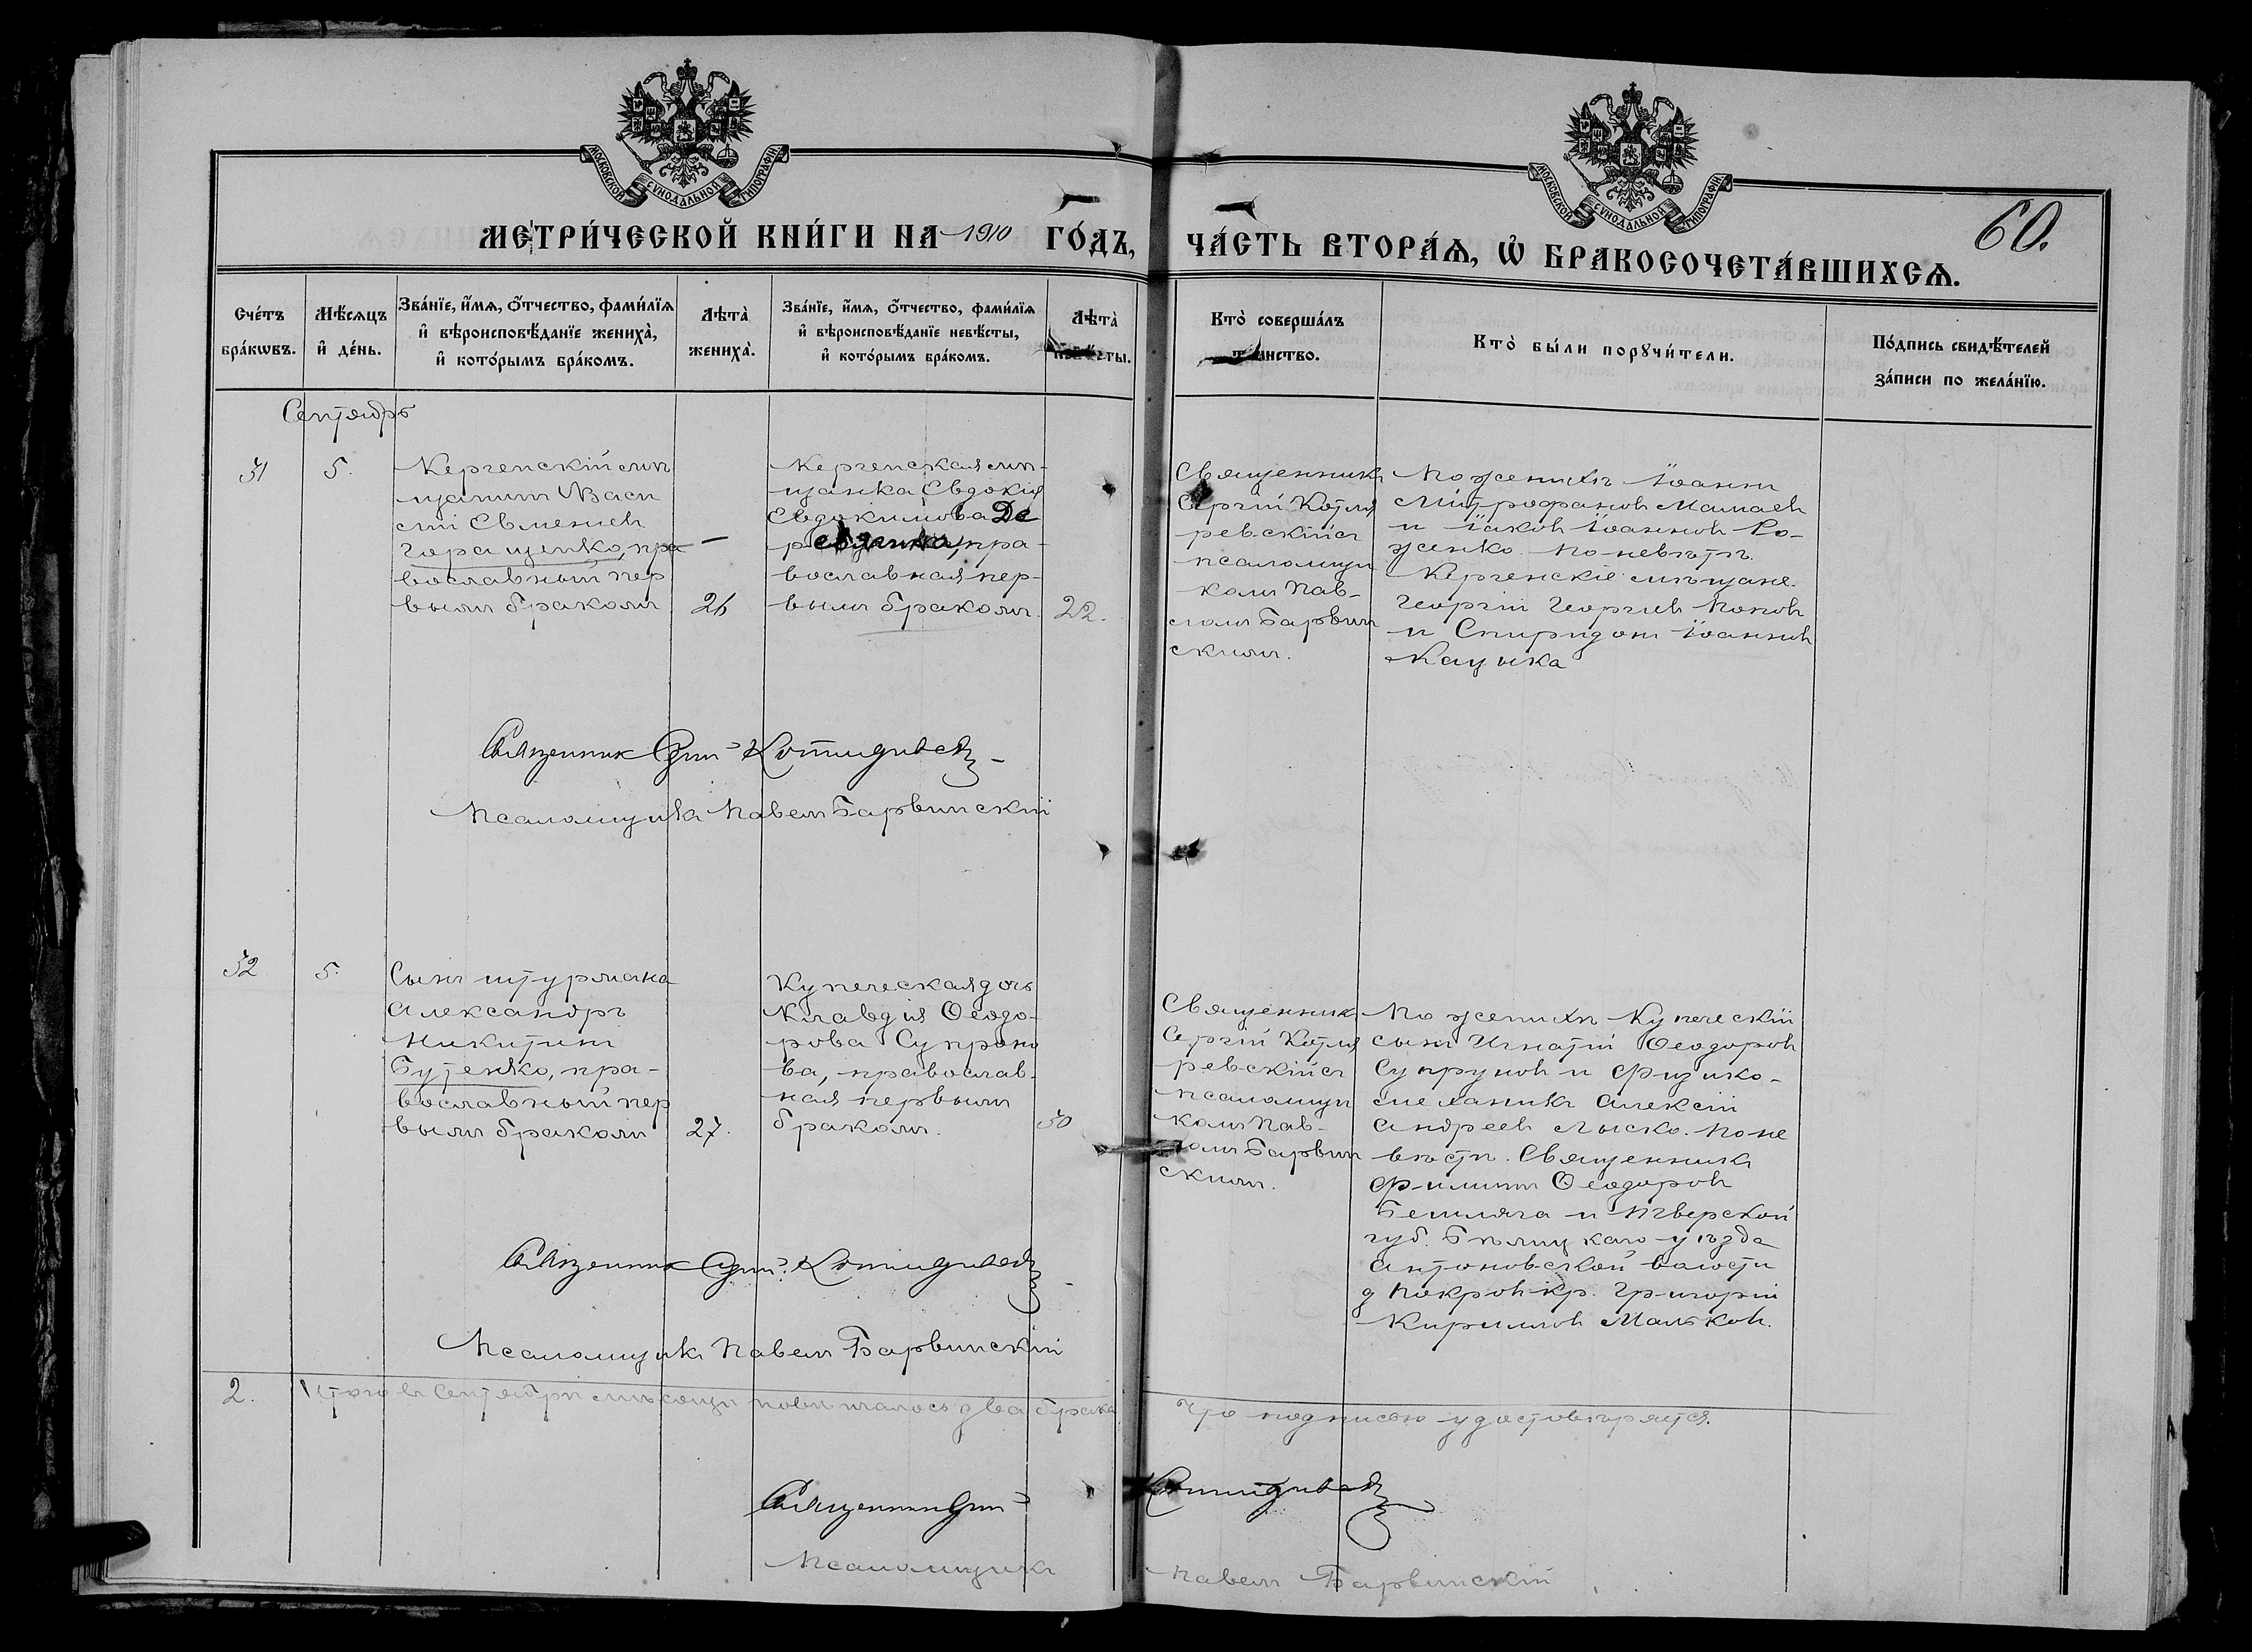 МОСКОВСКОЙ СѴНОДАЛЬНОЙ ТИПОГРАФІИ
МОСКОВСКОЙ СѴНОДАЛЬНОЙ ТИПОГРАФІИ
60.
МЕТРИ́ЧЕСКОЙ КНИ́ГИ НА 1910 ГО́ДЪ,
ЧА́СТЬ ВТОРА́Ѧ, Ѽ БРАКОСОЧЕТА́ВШИХСѦ.
Сче́тъ бра́кѡвъ.
Мѣ́сѧцъ и҆ де́нь.
Зва́нїе, и҆́мѧ, ѻ҆́тчество, фами́лїѧ
и҆ вѣроисповѣ́данїе жениха̀,
и҆ кото́рымъ бра́комъ.
Лѣта̀ жениха̀.
Зва́нїе, и҆́мѧ, ѻ҆́тчество, фами́лїѧ
и҆ вѣроисповѣ́данїе невѣ́сты,
и҆ кото́рымъ бра́комъ.
Лѣта̀ невѣ́сты.
Кто̀ соверша́лъ
таинство.
Кто̀ бы́ли порꙋчи́тели.
По́дпись свидѣ́телей
за́писи по жела́нїю.
Сентябрь
31
5.
Керченскій мѣ
щанинъ Васи
лій Евменіевъ
Горащенко, пра
вославный пер
вымъ бракомъ
26
Керченская мѣ-
щанка Евдокія
Евдокимова Де
пра-
вославная пер-
вымъ бракомъ.
22.
Священникъ
Сергій Котля
ревскій съ
псаломщи
комъ Пав-
ломъ Барвин
скимъ.
По женихѣ Іоаннъ
Митрофановъ Мамаевъ
и Іаковъ Іоанновъ Ро-
женко. По невѣстѣ.
Керченскіе мѣщане.
Георгій Георгіевъ Поповъ
и Спиридонъ Іоанновъ
Кацыка
Священникъ Сергій Котляревскій
Псаломщикъ Павелъ Барвинскій
32
5.
Сынъ штурмана
Александръ
Никитинъ
Бутенко, пра-
вославный пер
вымъ бракомъ
27.
Купеческая дочь
Клавдія Ѳеодо-
рова Супруно
ва, православ-
ная первымъ
бракомъ.
30
Священникъ
Сергій Котля
ревскій съ
псаломщи
комъ Пав-
ломъ Барвин
скимъ.
По женихѣ Купеческій
сынъ Игнатій Ѳеодоровъ
Супруновъ и Физико-
механикъ Алексій
Андреевъ Лыско. По не
вѣстѣ. Священникъ
Филиппъ Ѳеодоровъ
Бешляга и Тверской
губ. Бѣлицкаго уѣзда
Антоновской волости
д Покровъ кр. Григорій
Кирилловъ Мальковъ.
Священникъ Сергій Котляревскій
Псаломщикъ Павелъ Барвинскій
2. Итого въ Сентябрѣ мѣсяцѣ повѣнчалось два брака
Что подписью удостовѣряется.
Священникъ Сергій Котляревскій
Псаломщикъ Павелъ Барвинскій